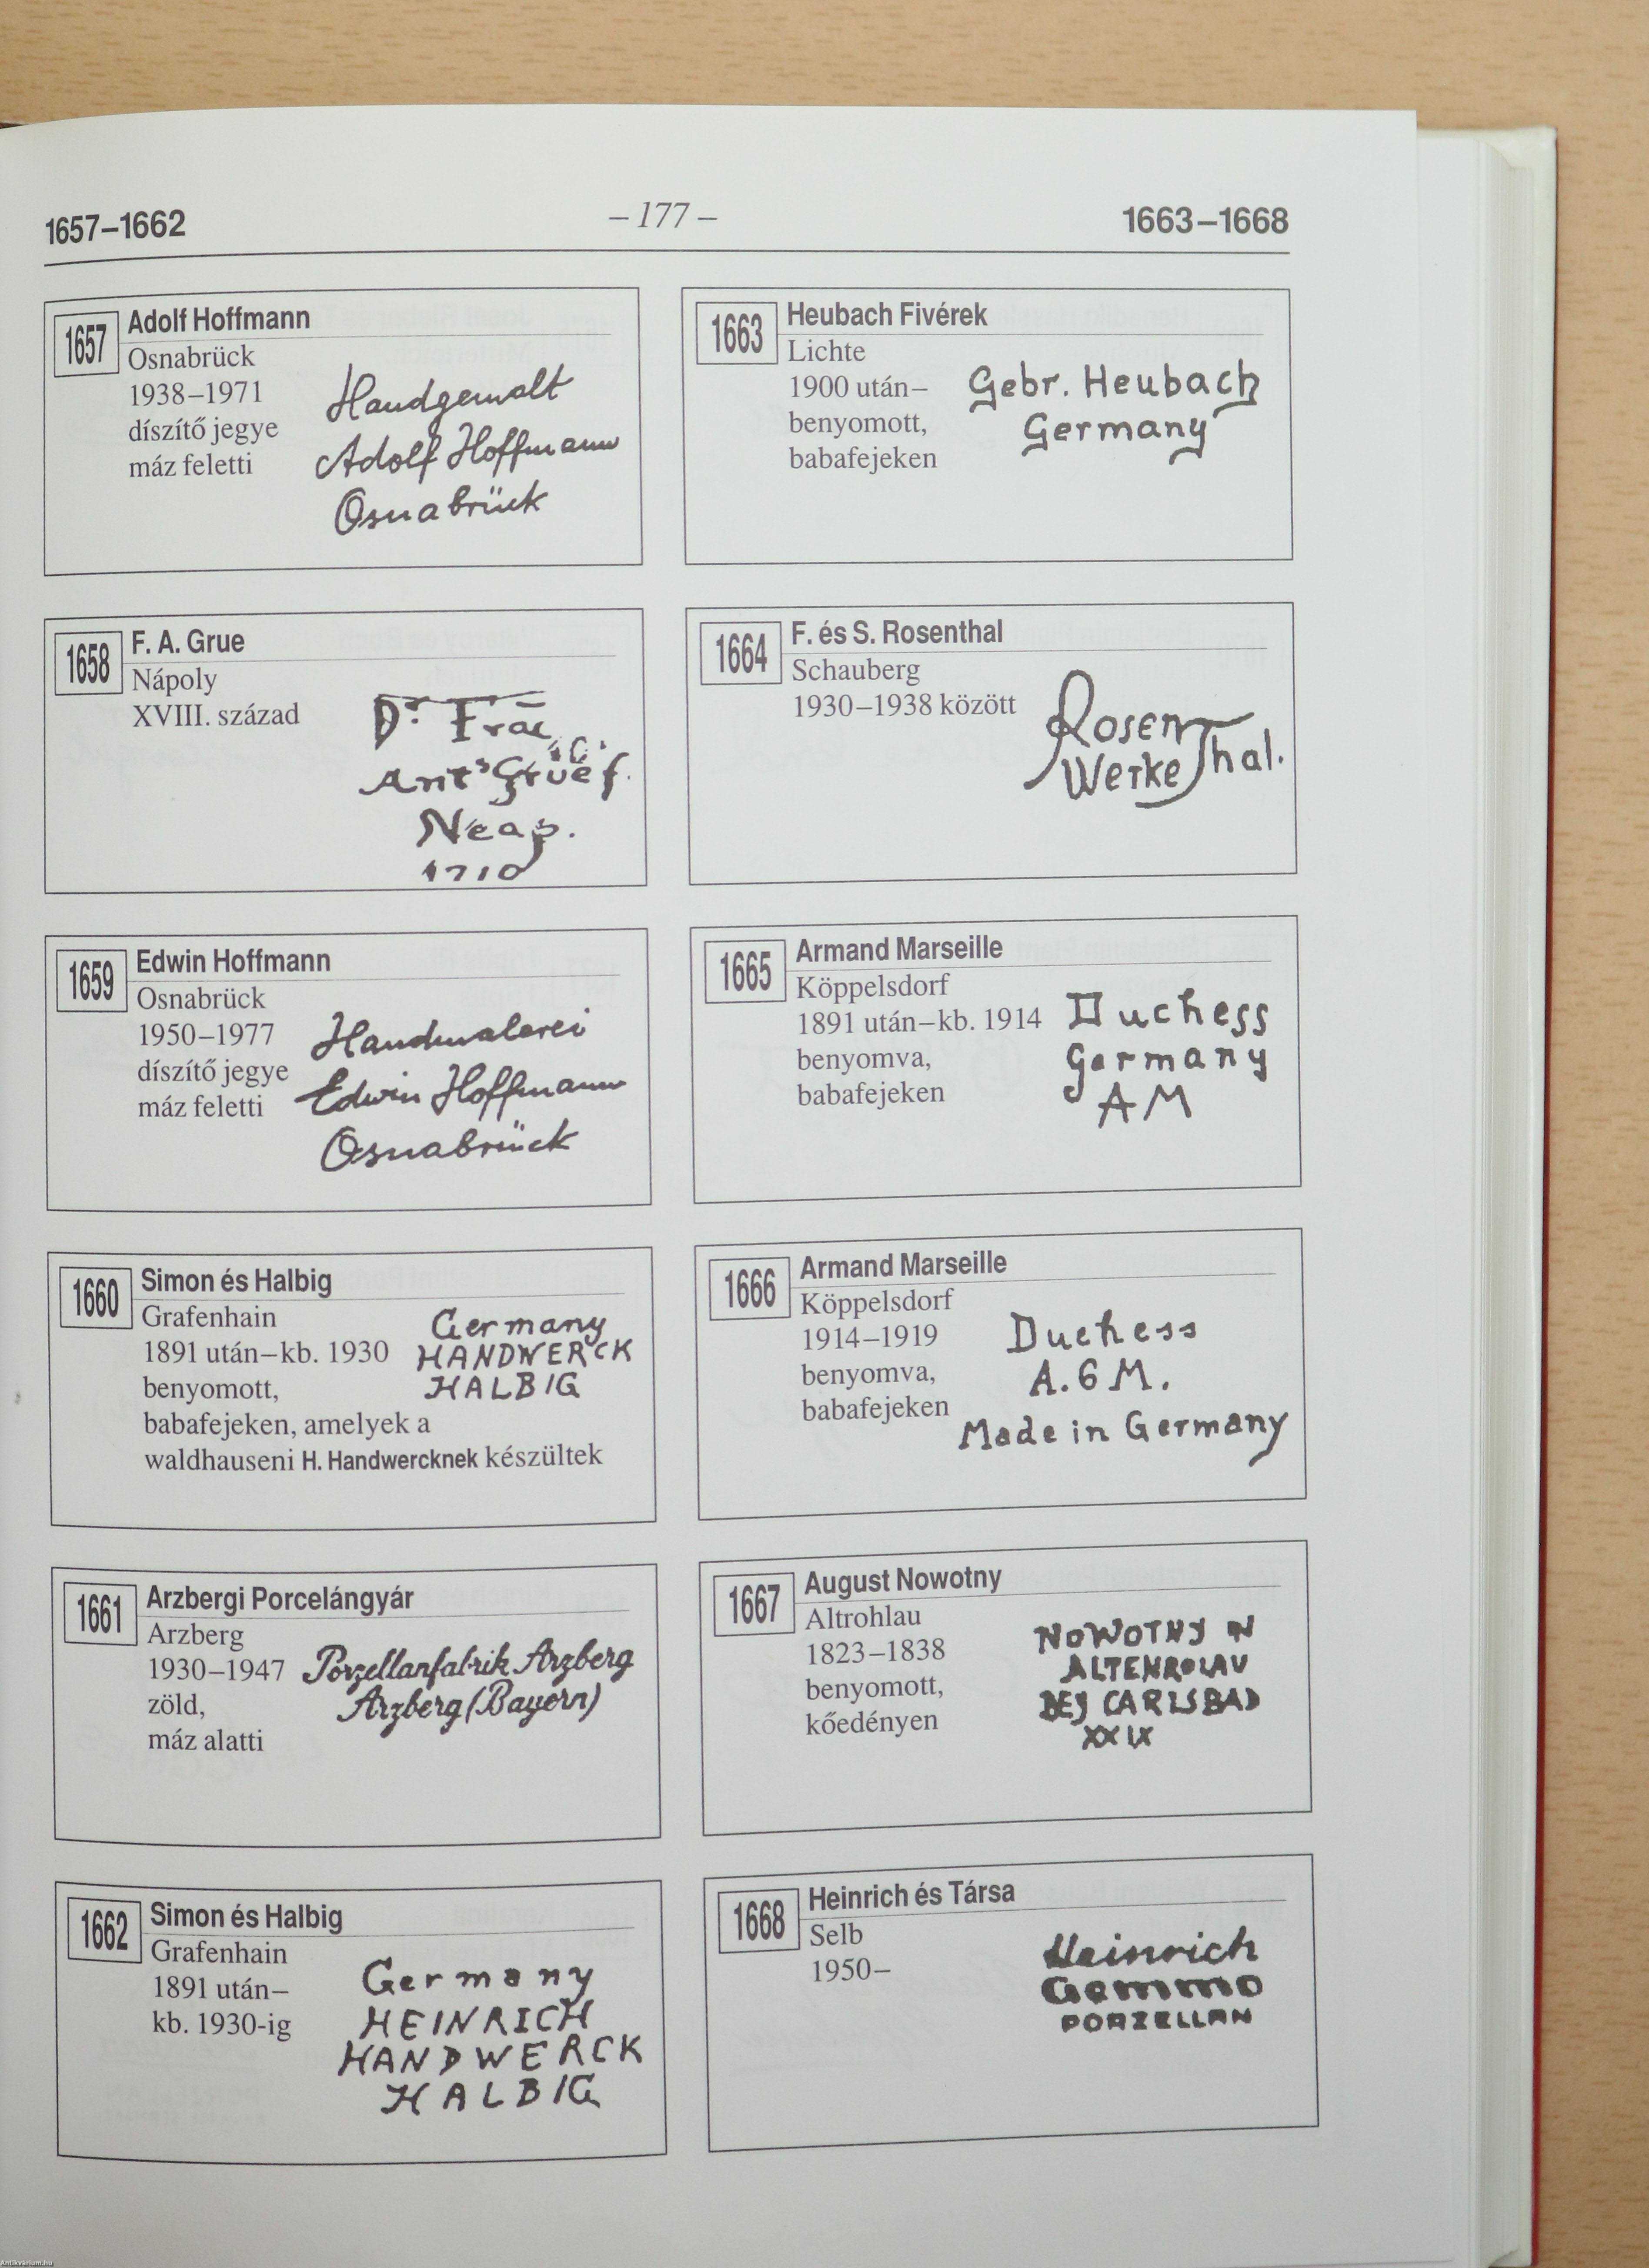 1657–1662
– 177 –
1663–1668
1657
Adolf Hoffmann
Osnabrück
1938–1971
díszítő jegye
máz feletti
Handgemalt
Adolf Hoffmann
Osnabrück
1658
F. A. Grue
Nápoly
XVIII. század
Dr. Frac
Ant.s Grue f.
Neap.
1710
1659
Edwin Hoffmann
Osnabrück
1950–1977
díszítő jegye
máz feletti
Handmalerei
Edwin Hoffmann
Osnabrück
1660
Simon és Halbig
Grafenhain
1891 után–kb. 1930
benyomott,
babafejeken, amelyek a
waldhauseni H. Handwercknek készültek
Germany
HANDWERCK
HALBIG
1661
Arzbergi Porcelángyár
Arzberg
1930–1947
zöld,
máz alatti
Porzellanfabrik Arzberg
Arzberg (Bayern)
1662
Simon és Halbig
Grafenhain
1891 után–
kb. 1930-ig
Germany
HEINRICH
HANDWERCK
HALBIG
1663
Heubach Fivérek
Lichte
1900 után–
benyomott,
babafejeken
Gebr. Heubach
Germany
1664
F. és S. Rosenthal
Schauberg
1930–1938 között
Rosenthal.
Werke
1665
Armand Marseille
Köppelsdorf
1891 után–kb. 1914
benyomva,
babafejeken
Duchess
Germany
AM
1666
Armand Marseille
Köppelsdorf
1914–1919
benyomva,
babafejeken
Duchess
A. 6 M.
Made in Germany
1667
August Nowotny
Altrohlau
1823–1838
benyomott,
kőedényen
NOWOTNY IN
ALTENROLAU
BEJ CARLSBAD
XXIX
1668
Heinrich és Társa
Selb
1950–
Heinrich
Gemmo
PORZELLAN
Antikvarium.hu